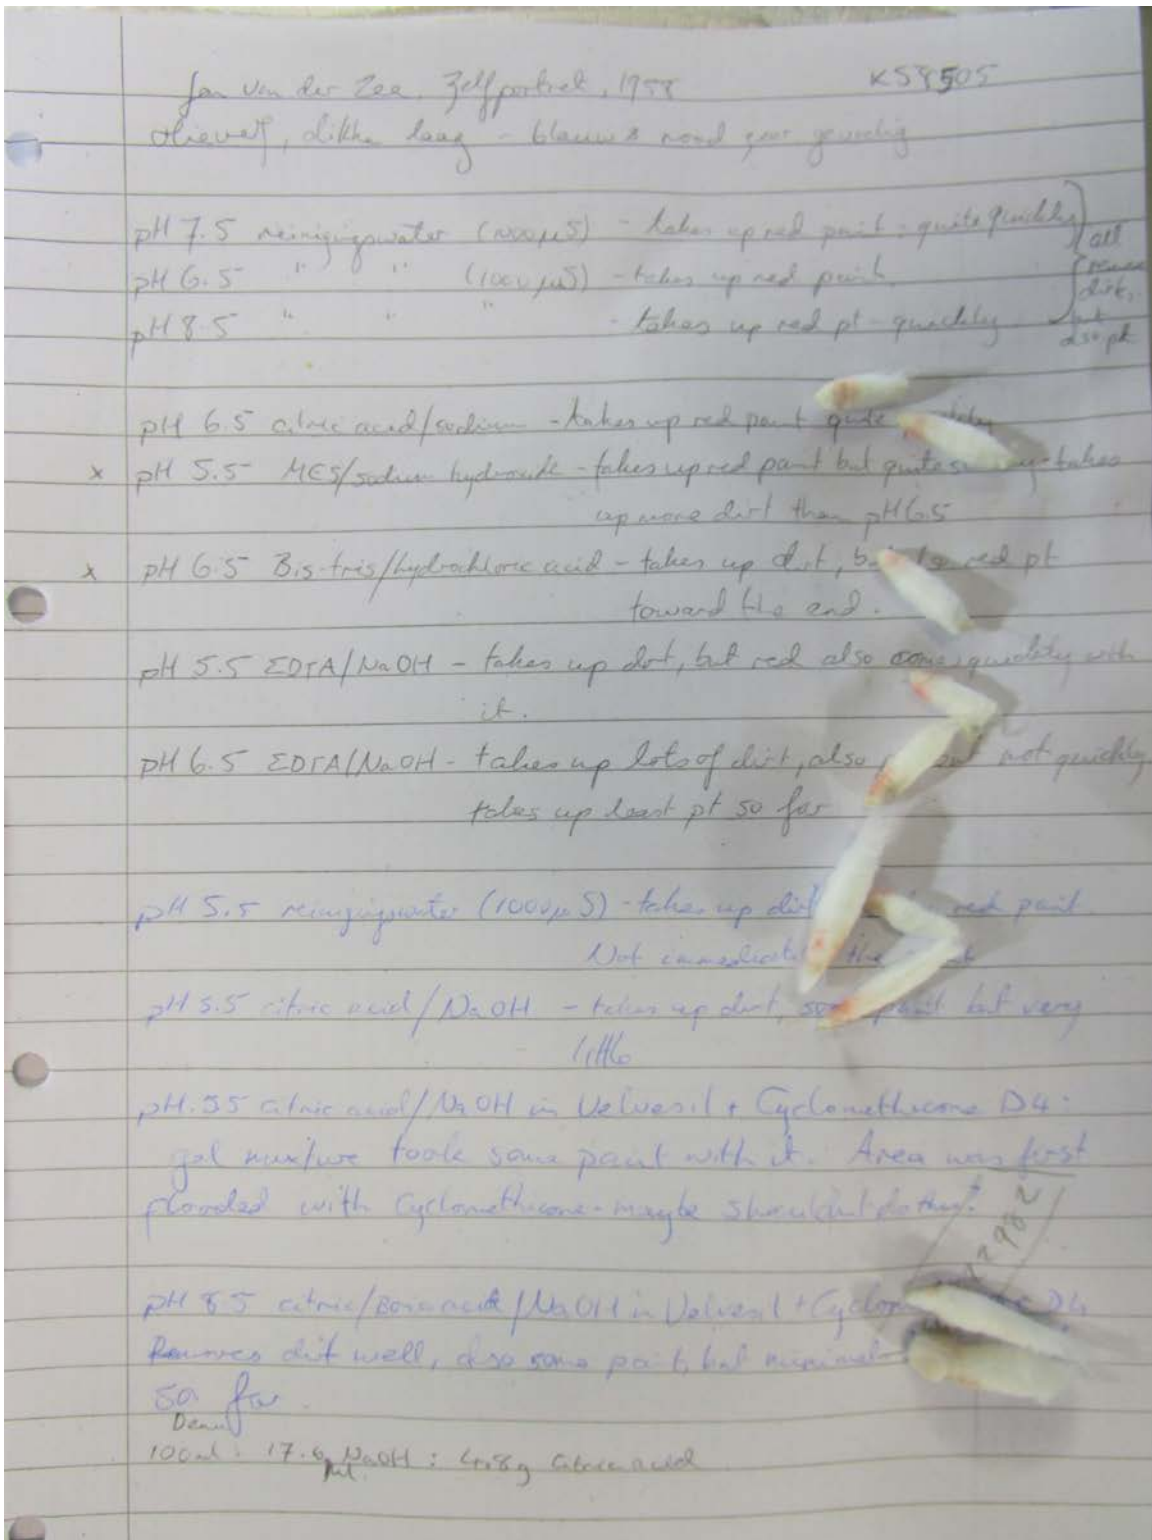 Jan van der Zee, Zelfportret, 1958 KS8505
olieverf, dikke laag - blauw & rood zeer gevoelig
pH 7.5 reinigingswater (1000µS) - takes up red paint - quite quickly
pH 6.5 " " (1000µS) - takes up red paint.
pH 8.5 " " " - takes up red pt - quickly
all
remove
dirt,
but
also pt
pH 6.5 citric acid/sodium - takes up red paint quite
x pH 5.5 MES/sodium hydroxide - takes up red paint but quite - takes
up more dirt than pH 6.5
x pH 6.5 Bis-tris/hydrochloric acid - takes up dirt, red pt
toward the end.
pH 5.5 EDTA/NaOH - takes up dirt, but red also comes quickly with
it.
pH 6.5 EDTA/NaOH - takes up lots of dirt, also not quickly
takes up least pt so far
pH 5.5 reinigingswater (1000µS) - takes up dirt red paint.
Not
pH 5.5 citric acid/NaOH - takes up dirt, some paint but very
little
pH.55 citric acid/NaOH in Velvesil + Cyclomethicone D4:
gel mixture took some paint with it. Area was first
flooded with Cyclomethicone - maybe shouldn't do this?
pH 8.5 citric/Boric acid/NaOH in Velvesil + D4
Removes dirt well, also some paint, but minimal
so far.
Demi
100ml : 17.6 ml NaOH : 4.8g citric acid